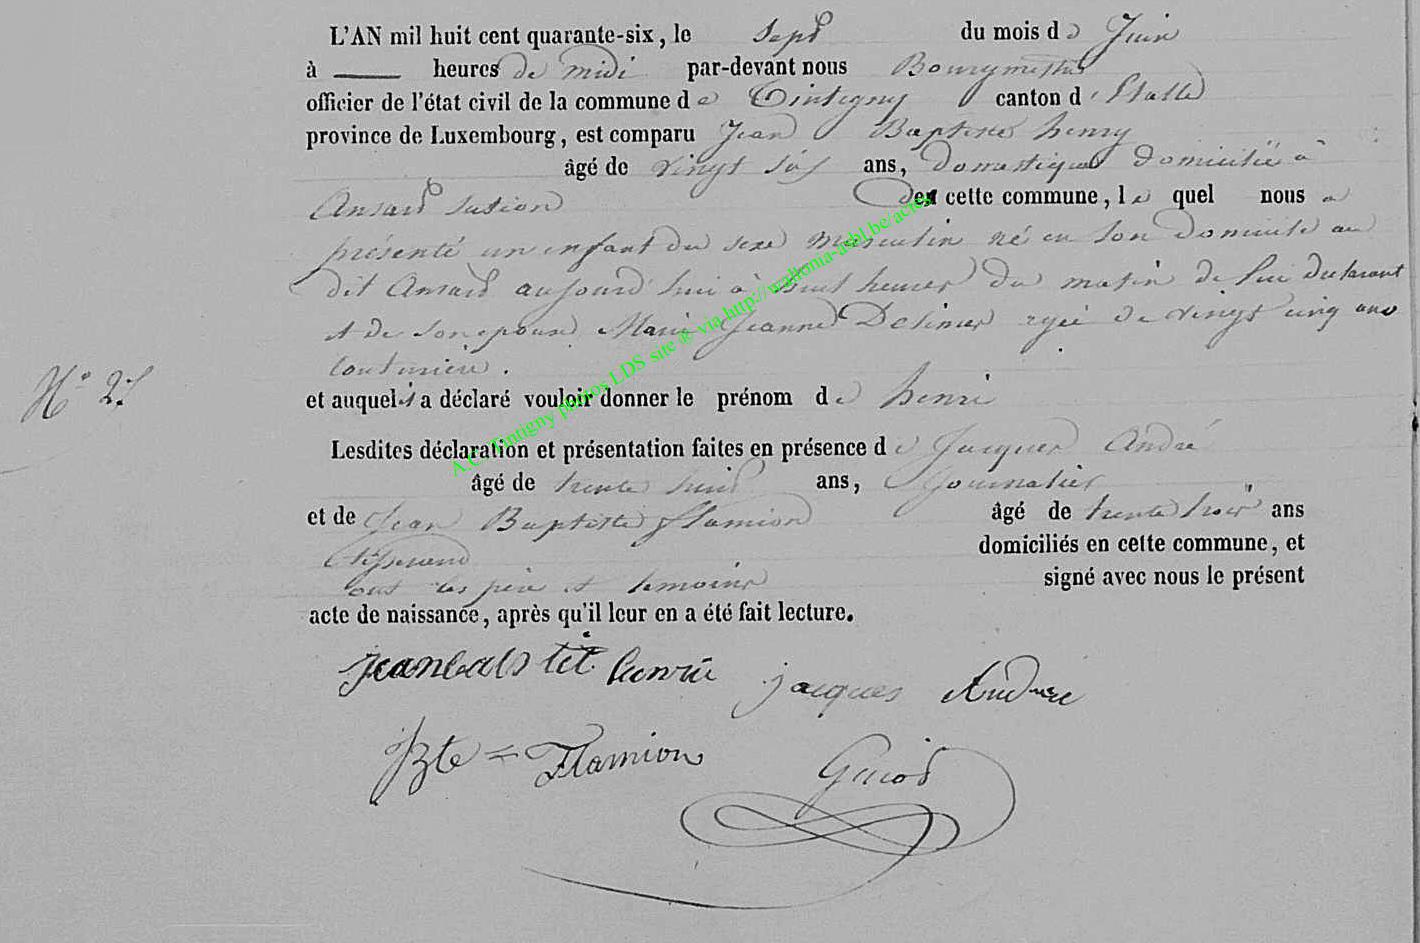 L'AN mil huit cent quarante-six, le sept du mois de Juin
à — heures de midi par-devant nous Bourgmestre
officier de l'état civil de la commune de Tintigny canton d'Etalle
province de Luxembourg, est comparu Jean Baptiste henry
âgé de vingt six ans, domestique domicilié à
Ansart section de cette commune, le quel nous a
présenté un enfant du sexe masculin né en son domicile au
dit Ansart aujourd'hui à huit heures du matin de lui déclarant
et de son epouse Marie Jeanne agée de vingt cinq ans
couturière.
N° 27
et auquel il a déclaré vouloir donner le prénom de henri
Lesdites déclaration et présentation faites en présence de Jacques André
âgé de trente huit ans, Journalier
et de Jean Baptiste Flamion âgé de trente trois ans
tisserand domiciliés en cette commune, et
ont les père et temoins signé avec nous le présent
acte de naissance, après qu'il leur en a été fait lecture.
jeanbatstit henri jacques Andrec
Bte = Flamion
A.C. Tintigny photos LDS site ® via http://wallonia-asbl.be/actes